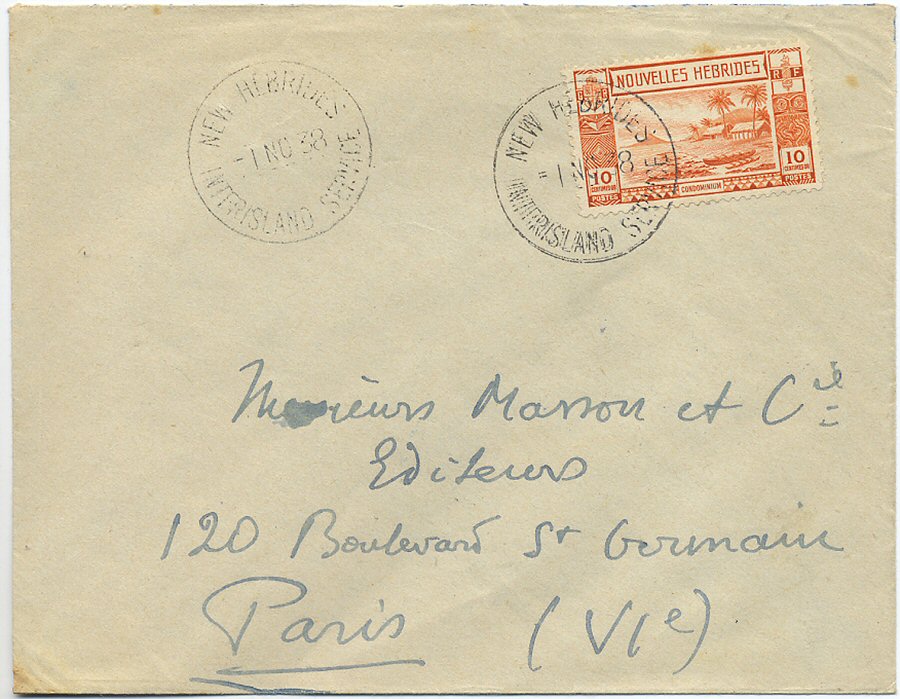 NEW HEBRIDES
-1 NO 38
INTERISLAND SERVICE
NEW HEBRIDES
-1 NO 38
INTERISLAND SERVICE
NOUVELLES HEBRIDES
RF
RF
10
CENTIMES OR
POSTES
CONDOMINIUM
10
CENTIMES OR
POSTES
Messieurs Masson et Cie
Editeurs
120 Boulevard St Germain
Paris (VIe)